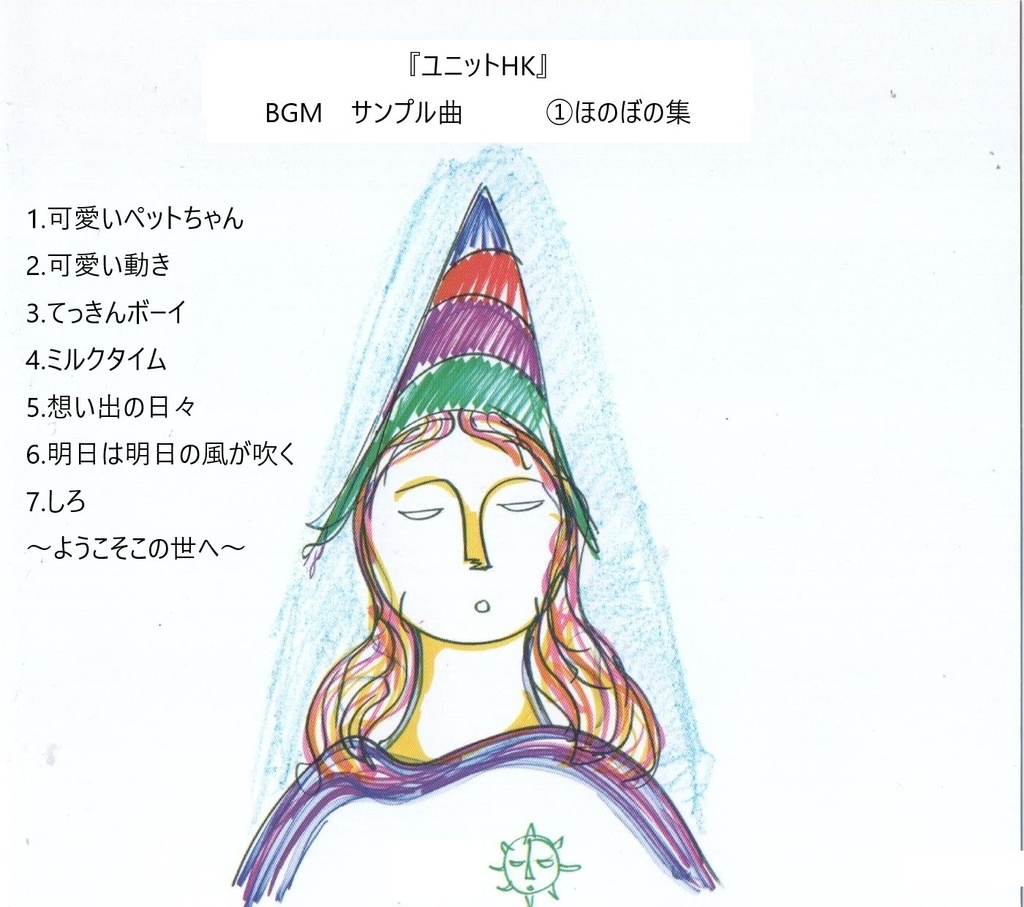 『ユニットHK』
BGM　サンプル曲　　　①ほのぼの集
1.可愛いペットちゃん
2.可愛い動き
3.てっきんボーイ
4.ミルクタイム
5.想い出の日々
6.明日は明日の風が吹く
7.しろ
～ようこそこの世へ～